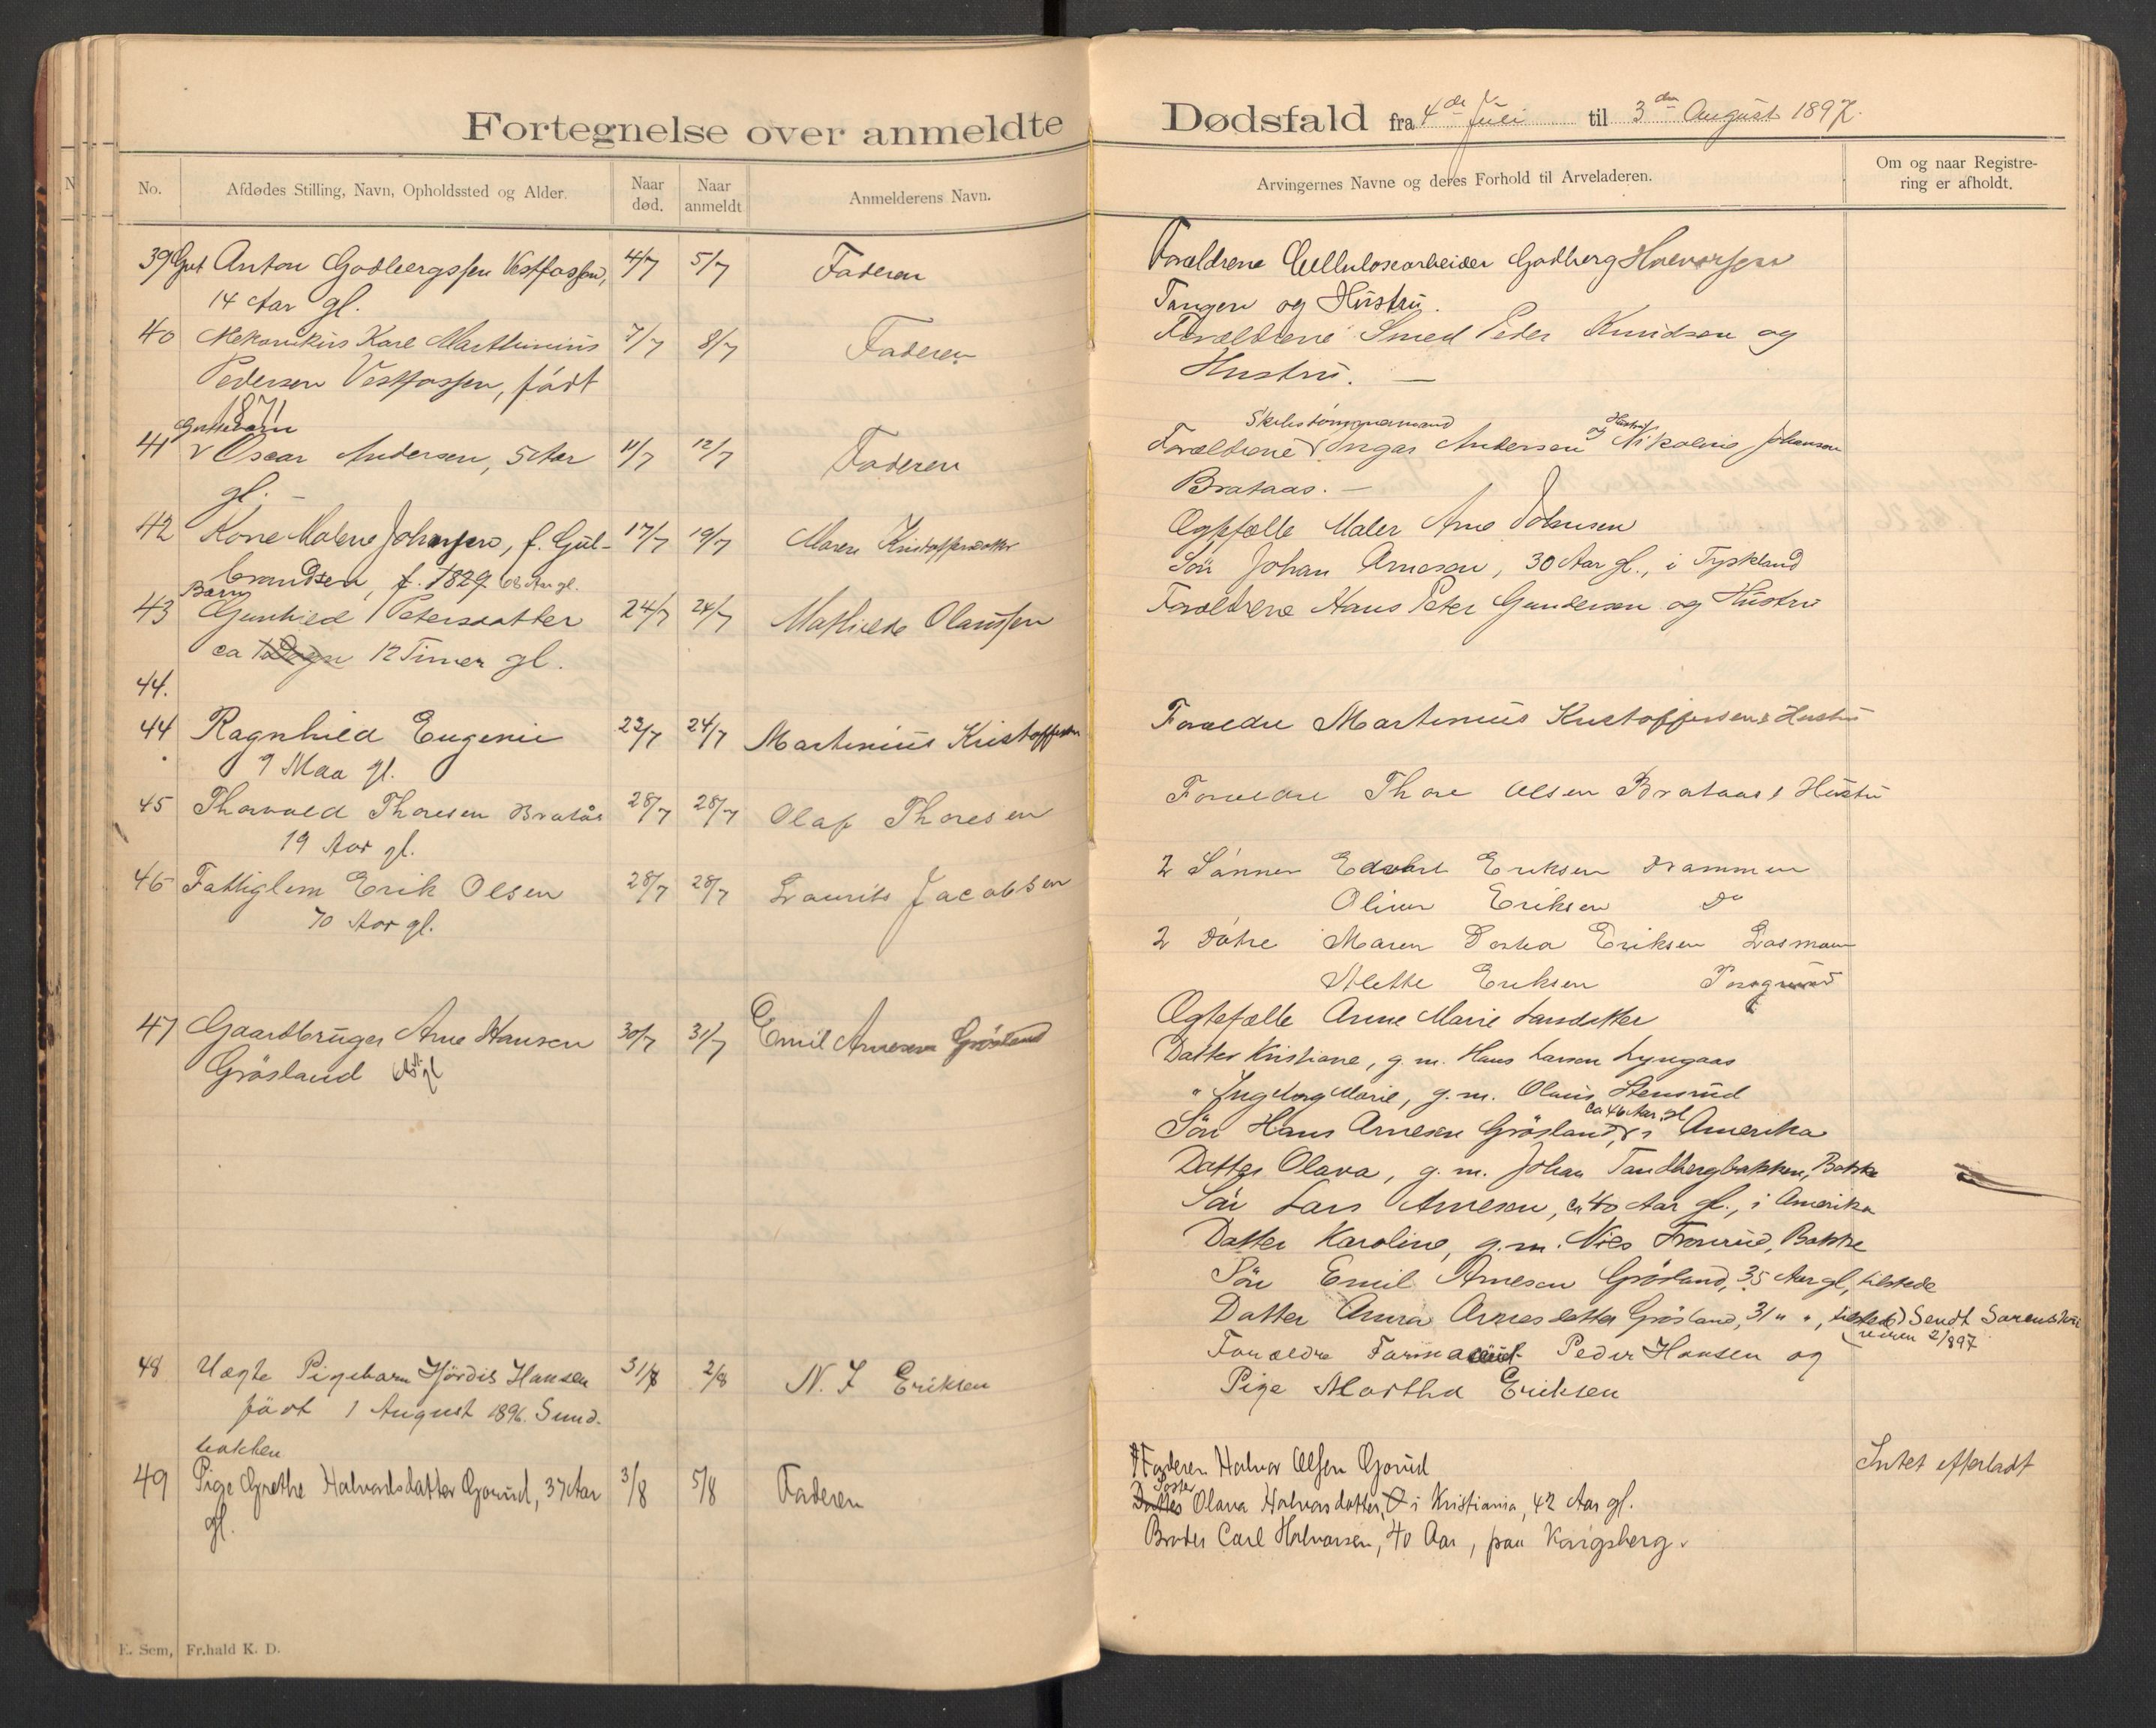 Fortegnelse over anmeldte
Dødsfald fra 4de Juli til 3dm August 1897.
No.
Afdødes Stilling, Navn, Opholdssted og Alder.
Naar død.
Naar anmeldt
Anmelderens Navn.
Arvingernes Navne og deres Forhold til Arveladeren.
Om og naar Registre-
ring er afholdt.
39 Gut Anton Godbergssen Vestfossen, 4/7 5/7 Faderen
14 Aar gl.
Forældrene Cellulosearbeider Godberg Halvorsen
Tangen og Hustru.
40 Mekanikus Karl Marthinius 7/7 8/7 Faderen
Pedersen Vestfossen, født
1871
Forældrene Smed Peder Knudsen og
Hustru. —
Guttebarn
41 v Oscar Andersen, 5 Aar 11/7 12/7 Faderen
gl. —
Forældrene v Ingar Andersen og Hustru Nikoline Johansen
Brataas. —
42 Kone Malene Johnsen, f. Gul- 17/7 19/7 Maren Kristoffersdatter
brandsen, f. 1829 68 Aar gl.
Ægtefælle Maler Arne Johnsen
Sön Johan Arnesen, 30 Aar gl., i Tyskland
Barn
43 Gunhild Petersdatter 24/7 24/7 Mathilde Olaussen
ca 12 Timer gl.
Forældrene Hans Peter Gundersen og Hustru
44.
44 Ragnhild Eugenie 23/7 24/7 Martinius Kristoffersen
9 Maa gl.
Forældre Martinius Kristoffersen & Hustru
45 Thorvald Thoresen Bratås 28/7 28/7 Olaf Thoresen
19 Aar gl.
Forældre Thore Olsen Brataas & Hustru
46 Fattiglem Erik Olsen 28/7 28/7 Laurits Jacobsen
70 Aar gl.
2 Sønner Edvart Eriksen Drammen
Oliver Eriksen Do
2 Døtre Maren Eriksen
Alette Eriksen
47 Gaardbruger Arne Hansen 30/7 31/7 Emil Arnesen Grösland
Grösland
Ægtefælle Anne Marie Larsdatter
Datter Kristiane, g. m. Hans Larsen Lyngaas
" Ingeborg Marie, g. m. Olaus Stensrud
Sön Hans Arnesen Grösland, ca 46 Aar gl i Amerika
Datter Olava, g. m. Johan Tandbergbakken, Bakke
Sön Lars Arnesen, ca 40 Aar gl., i Amerika
Datter Karoline, g. m. Nils Bakke
Sön Emil Arnesen Grösland, 35 Aar gl, tilstede
Datter Anna Arnesdatter Grösland, 31 " ", tilstede) Sendt Sorenskri
veren 2/8 97
48 Uægte Pigebarn Hjördis Hansen 31/7 2/8 N. J Eriksen
født 1 August 1896. Sund-
bakken
Forældre Peder Hansen og
Pige Martha Eriksen
49 Pige Grethe Halvorsdatter Gorud, 37 Aar 3/8 5/8 Faderen
gl.
Faderen Halvor Olsen Gorud
Intet efterladt
Søster
Datter Olava Halvorsdatter, i Kristiania, 42 Aar gl.
Broder Carl Halvorsen, 40 Aar, paa Kongsberg.
E. Sem, Fr.hald K. D.